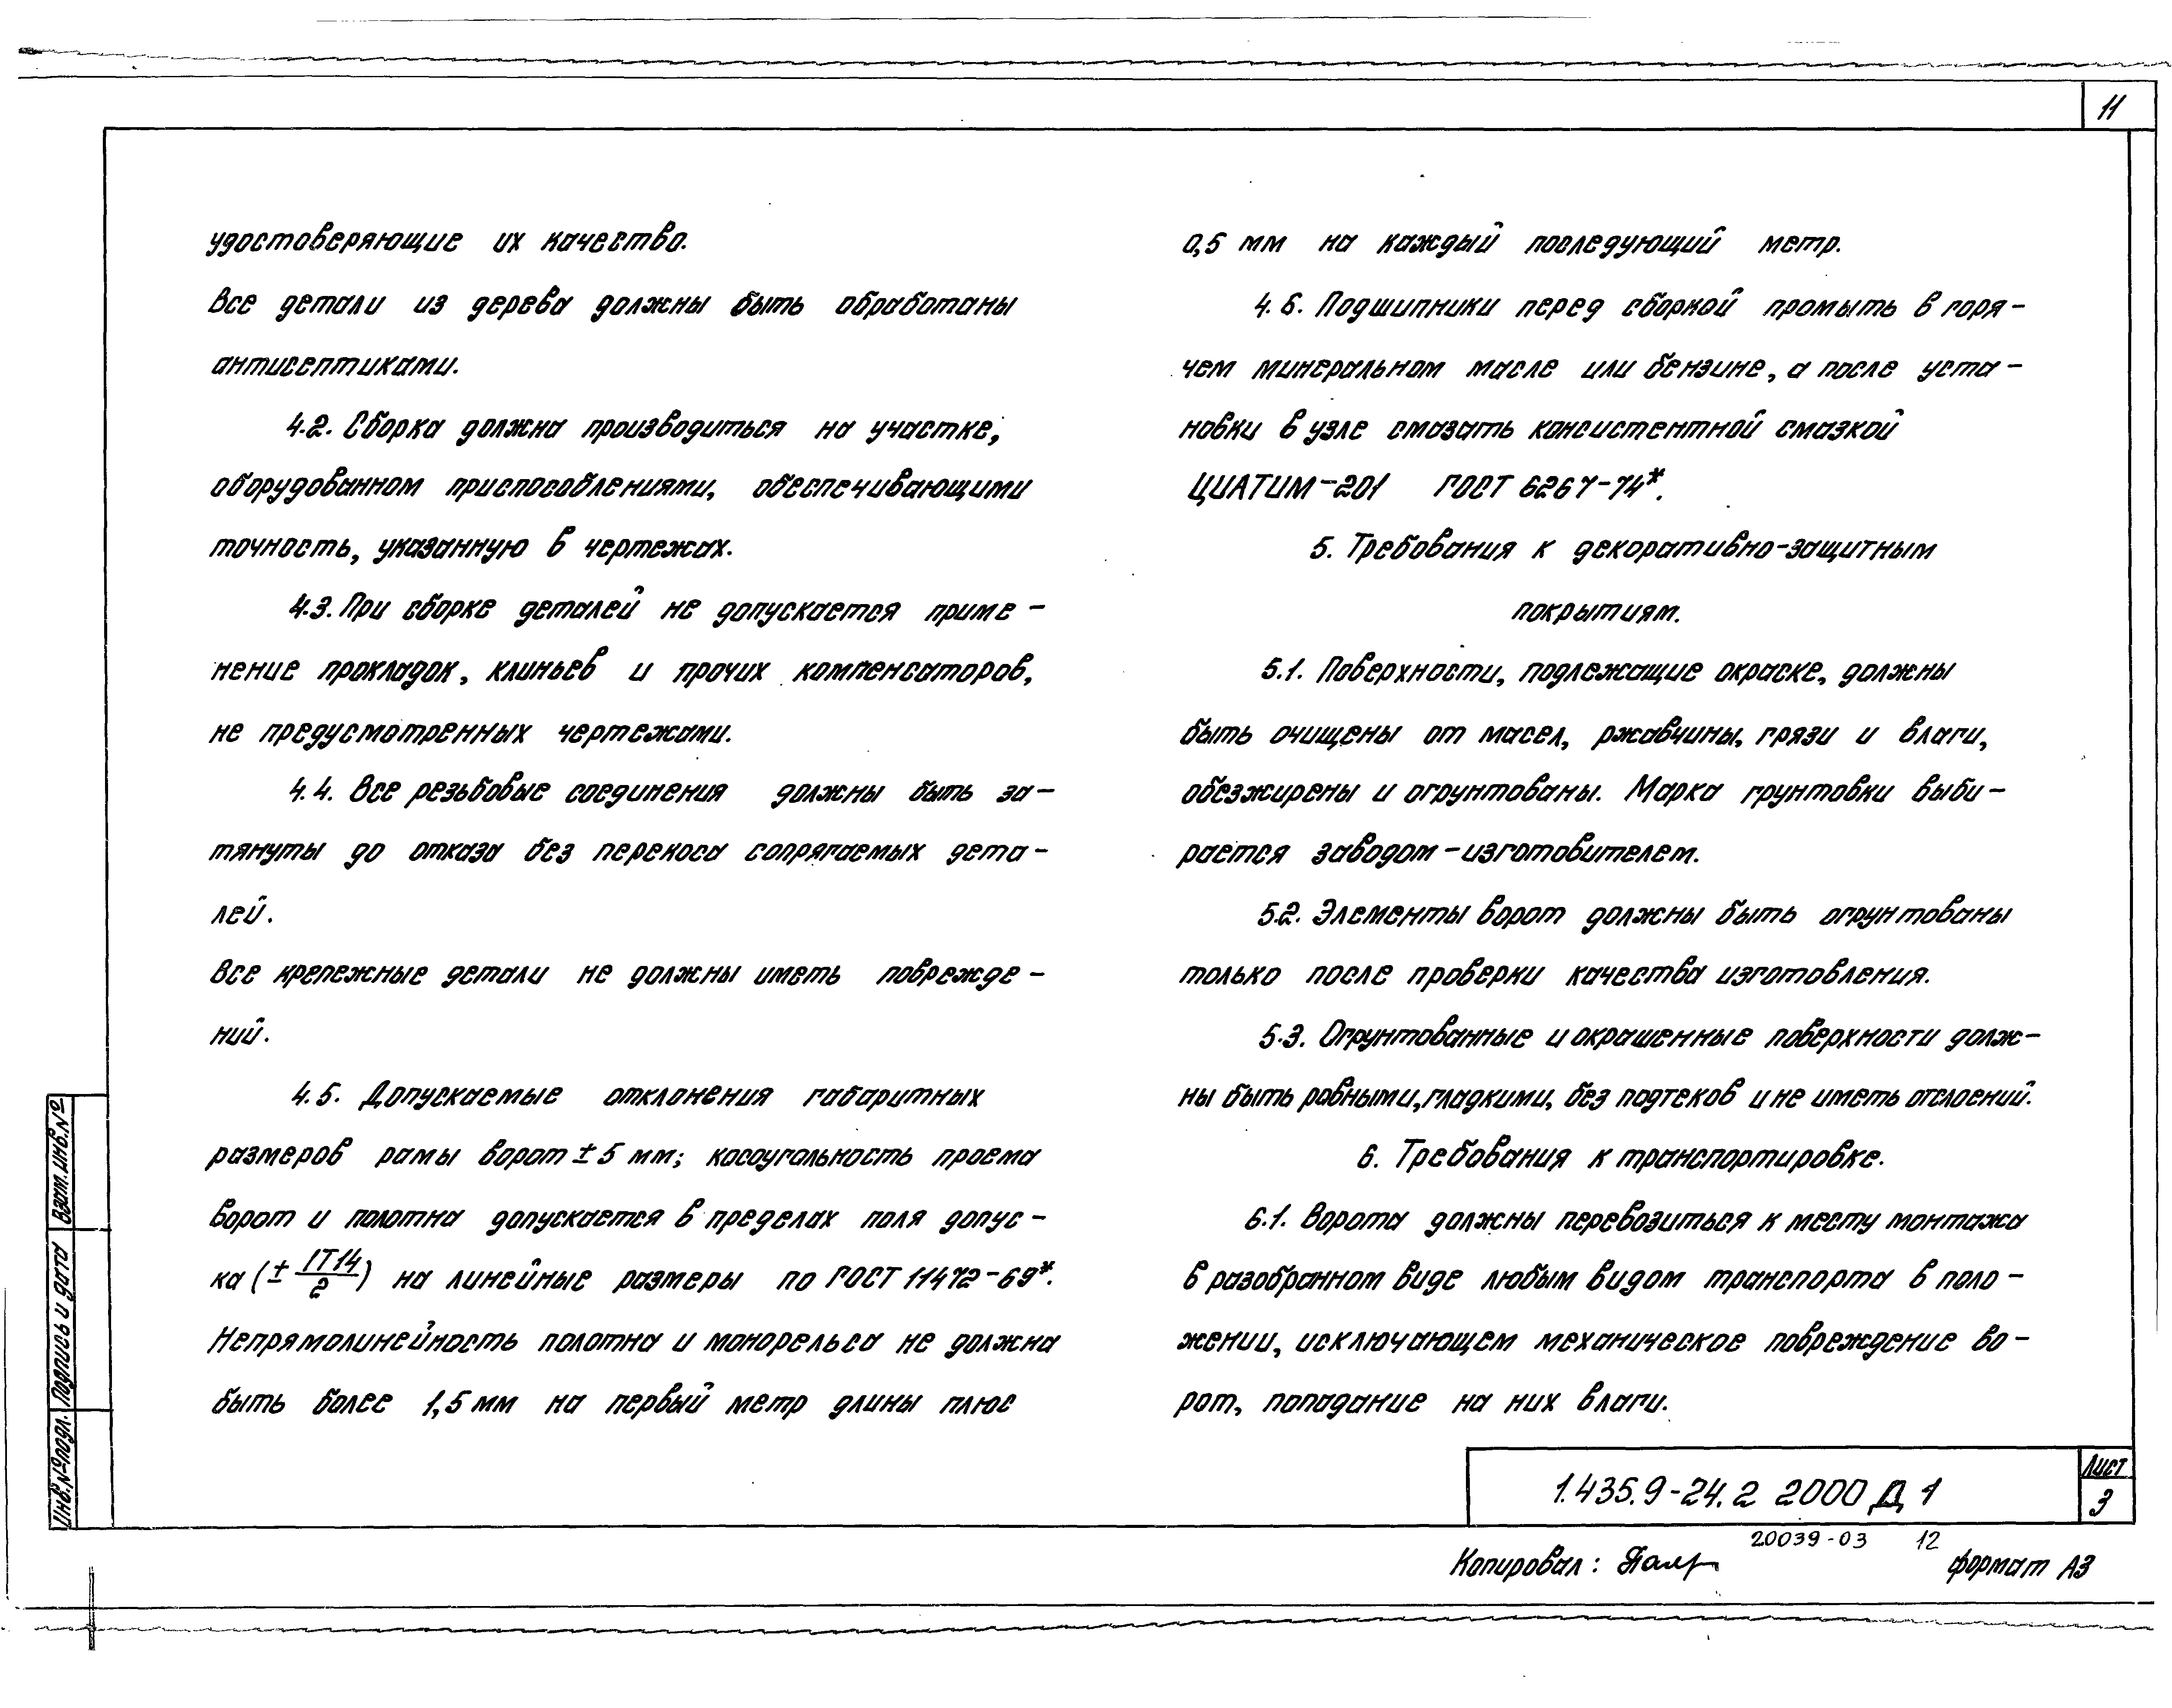 11
удостоверяющие их качество.
Все детали из дерева должны быть обработаны
антисептиками.
4.2. Сборка должна производиться на участке,
оборудованном приспособлениями, обеспечивающими
точность, указанную в чертежах.
4.3. При сборке деталей не допускается приме-
нение прокладок, клиньев и прочих компенсаторов,
не предусмотренных чертежами.
4.4. Все резьбовые соединения должны быть за-
тянуты до отказа без перекоса сопрягаемых дета-
лей.
Все крепежные детали не должны иметь поврежде-
ний.
4.5. Допускаемые отклонения габаритных
размеров рамы ворот ± 5 мм; косоугольность проема
ворот и полотна допускается в пределах поля допус-
ка (± IT14/2) на линейные размеры по ГОСТ 11472-69*.
Непрямолинейность полотна и монорельса не должна
быть более 1,5 мм на первый метр длины плюс
0,5 мм на каждый последующий метр.
4.6. Подшипники перед сборкой промыть в горя-
чем минеральном масле или бензине, а после уста-
новки в узле смазать консистентной смазкой
ЦИАТИМ-201 ГОСТ 6267-74*.
5. Требования к декоративно-защитным
покрытиям.
5.1. Поверхности, подлежащие окраске, должны
быть очищены от масел, ржавчины, грязи и влаги,
обезжирены и огрунтованы. Марка грунтовки выби-
рается заводом-изготовителем.
5.2. Элементы ворот должны быть огрунтованы
только после проверки качества изготовления.
5.3. Огрунтованные и окрашенные поверхности долж-
ны быть ровными, гладкими, без подтеков и не иметь отслоений.
6. Требования к транспортировке.
6.1. Ворота должны перевозиться к месту монтажа
в разобранном виде любым видом транспорта в поло-
жении, исключающем механическое повреждение во-
рот, попадание на них влаги.
Взам. инв. №
Подпись и дата
Инв. № подл.
1.435.9-24.2 2000 Д 1
Лист
3
20039-03 12
Копировал:
Формат А3